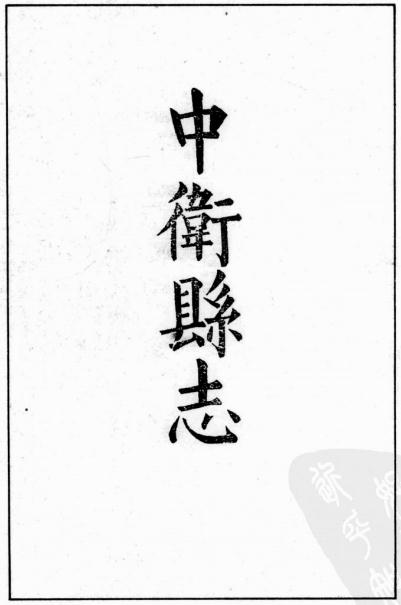 中衛縣志